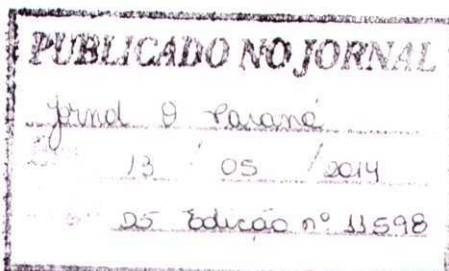 PUBLICADO NO JORNAL
Jornal O Paraná
13 / 05 / 2014
25 Edição nº 11.598